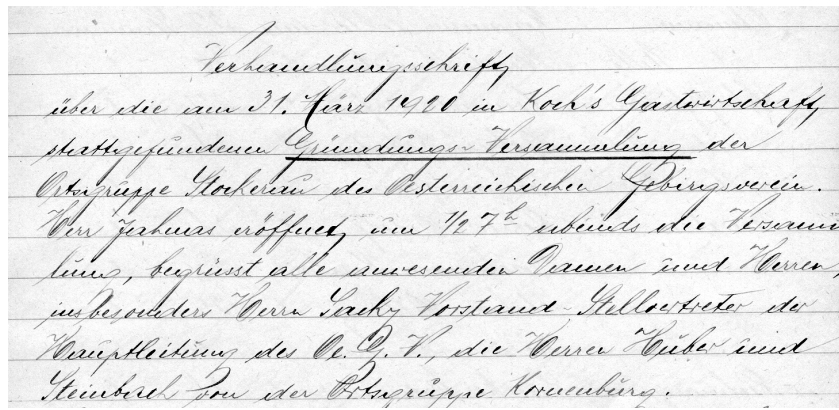 Verhandlungsschrift
über die am 31. März 1920 in Koch's Gastwirtschaft
stattgefundenen Gründungs-Versammlung der
Ortsgruppe Stockerau des Oesterreichischen Gebirgsverein.
Herr eröffnet um 1/2 7 h abends die Versamm
lung, begrüsst alle anwesenden Damen und Herren,
insbesonders Herrn Vorstand-Stellvertreter der
Hauptleitung des Oe. G. V., die Herren Huber und
Steinbach von der Ortsgruppe Korneuburg.